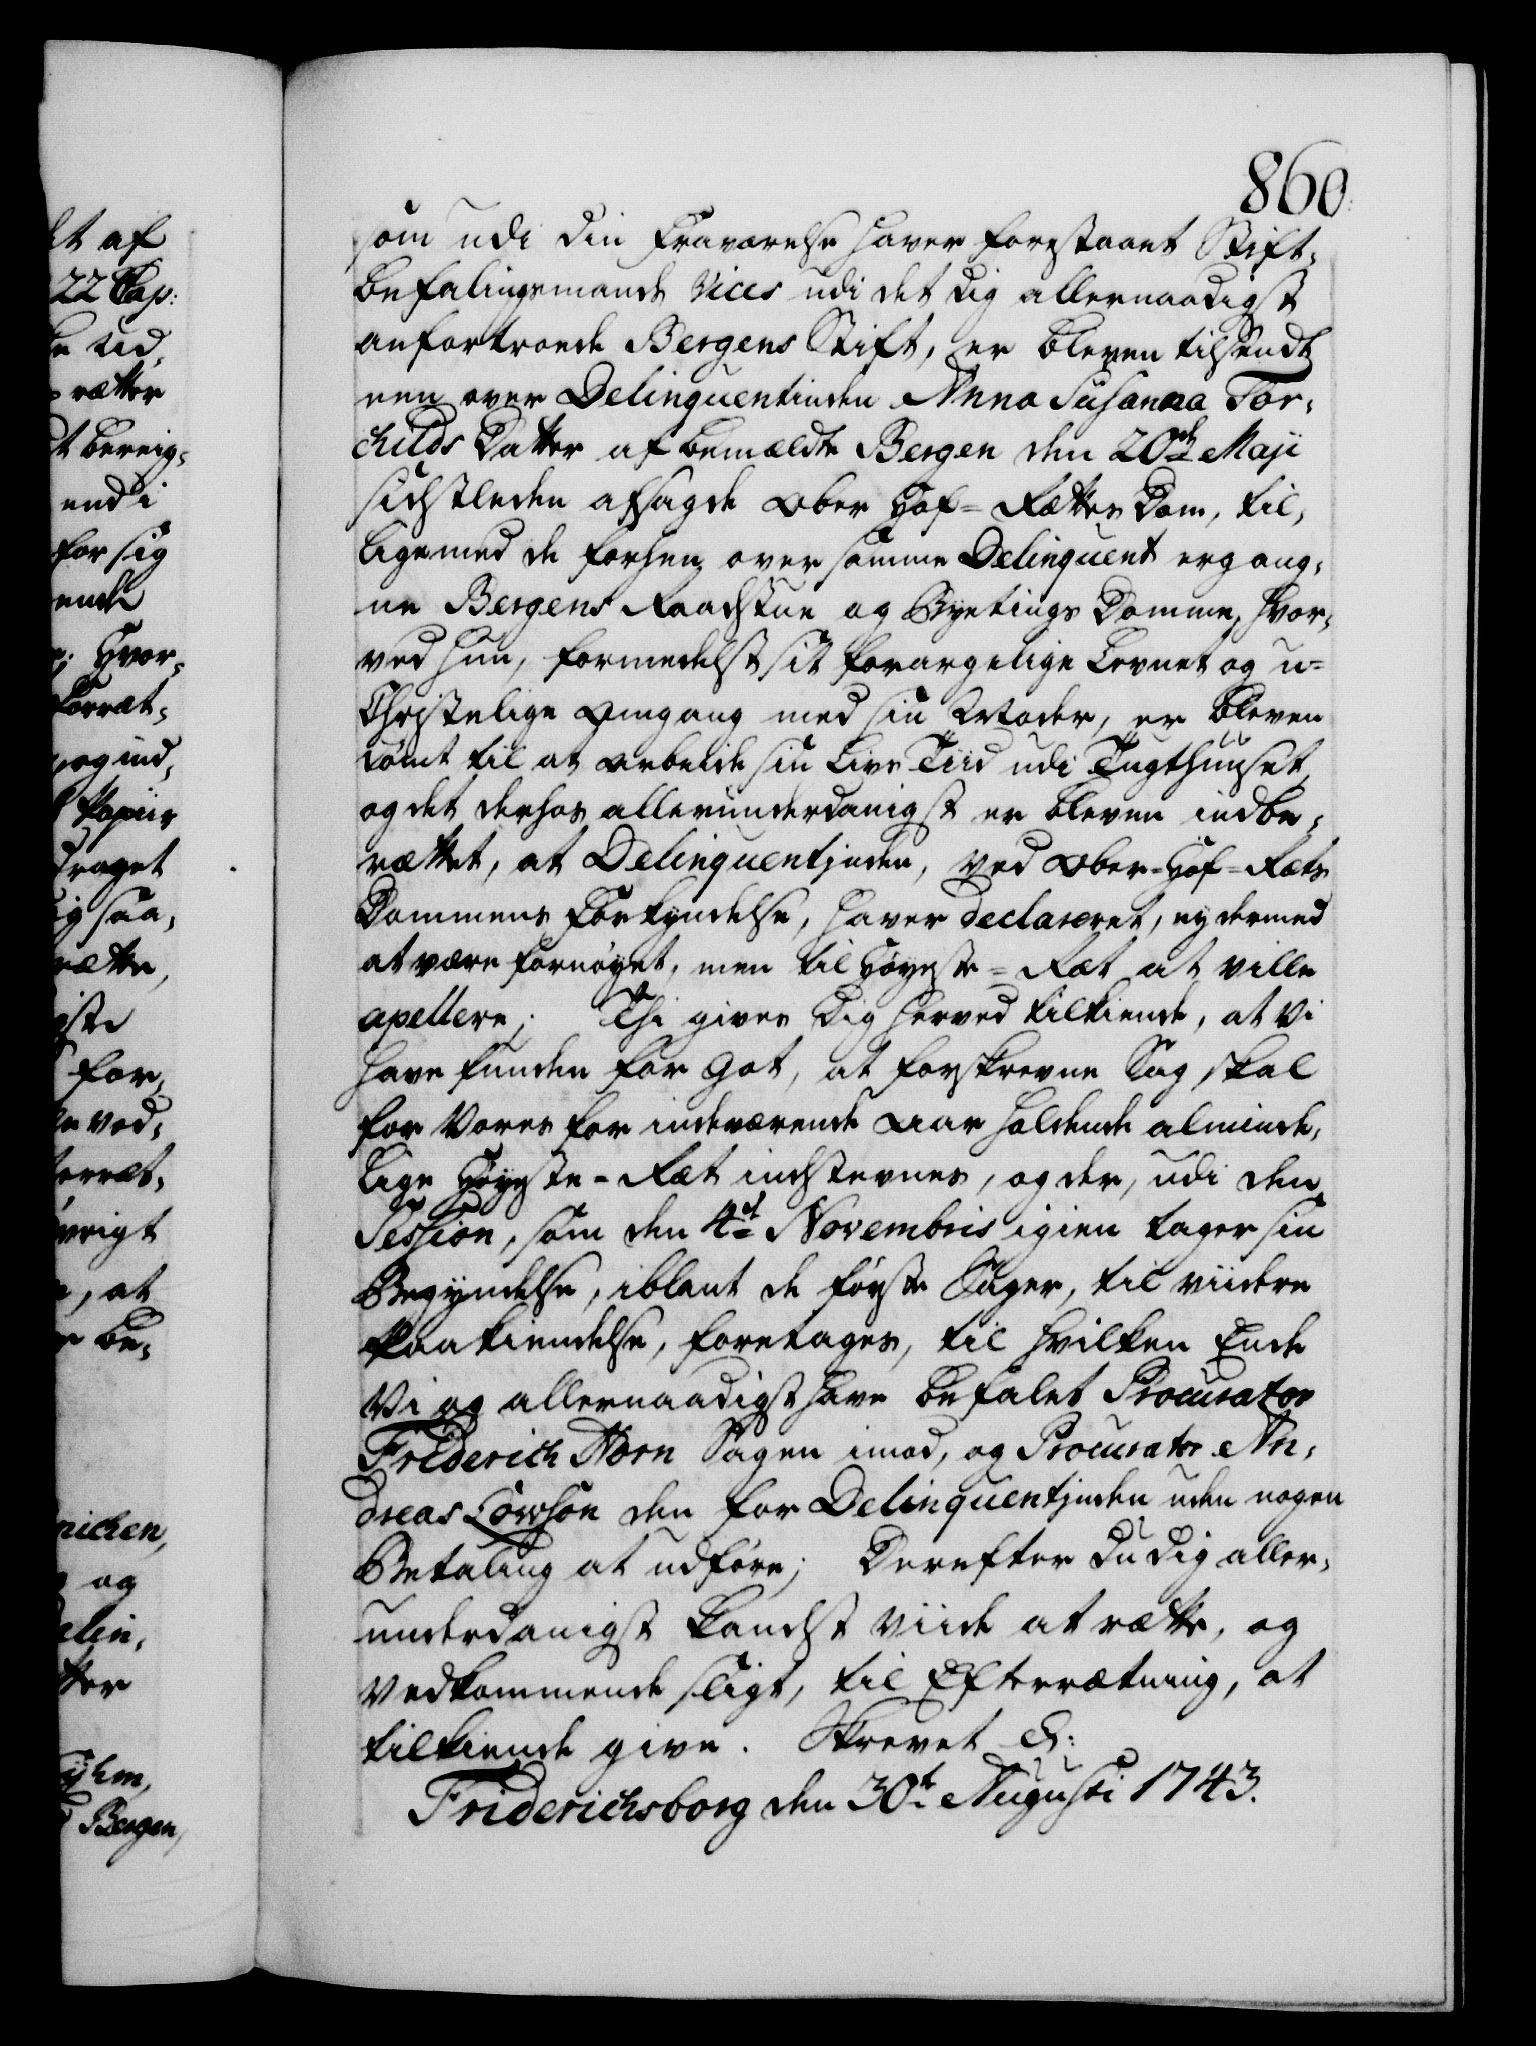 860.
som udi din Fraværelse haver forestaaet Stift-
befalingsmands Vices udi det dig allernaadigst
anfortroede Bergens Stift, er bleven tilsendt
een over Delinquentinden Anna Susanna Tor-
childs Datter af bemældte Bergen den 20de Maji
sidstleden afsagde Ober Hof-Rættes Dom, til-
ligemed de forhen over samme Delinquent ergang-
ne Bergens Raadstue og Byetings Domme, hvor-
ved hun, formedelst sit forargelige Levnet og u-
Christelige Omgang med sin Moder, er bleven
dømt til at arbeide sin Livs Tiid udi Tugthuuset,
og det derhos allerunderdanigst er bleven indbe-
rættet, at Delinquentinden, ved Ober-Hof-Rets
Dommens Forkyndelse, haver declareret, ey dermed
at være fornøyet, men til Høyeste-Ræt at ville
apellere; Thi gives dig herved tilkiende, at Vi
have funden for Got, at forskrevne Sag skal
for Vores for indeværende Aar holdende alminde-
lige Høyeste-Ræt indstevnes, og der, udi den
Session, som den 4de Novembris igien tager sin
Begyndelse, iblant de første Sager, til viidere
Paakiendelse, foretages, til hvilken Ende
Vi og allernaadigst have befalet Procurator
Friderich Horn Sagen imod, og Procurator An-
dreas Lowson den for Delinquentinden uden nogen
Betaling at udføre; Derefter du dig aller-
underdanigst kandst viide at rætte, og
vedkommende sligt, til Efterrætning, at
tilkiende give. Skrevet &:
Friderichsborg den 30te Augusti 1743.